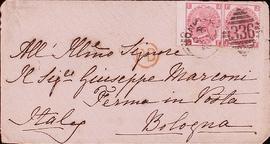 All' Illmo Signore
Il Sigr Giuseppe Marconi
Ferma in Posta
Bologna
Italy
336
PD